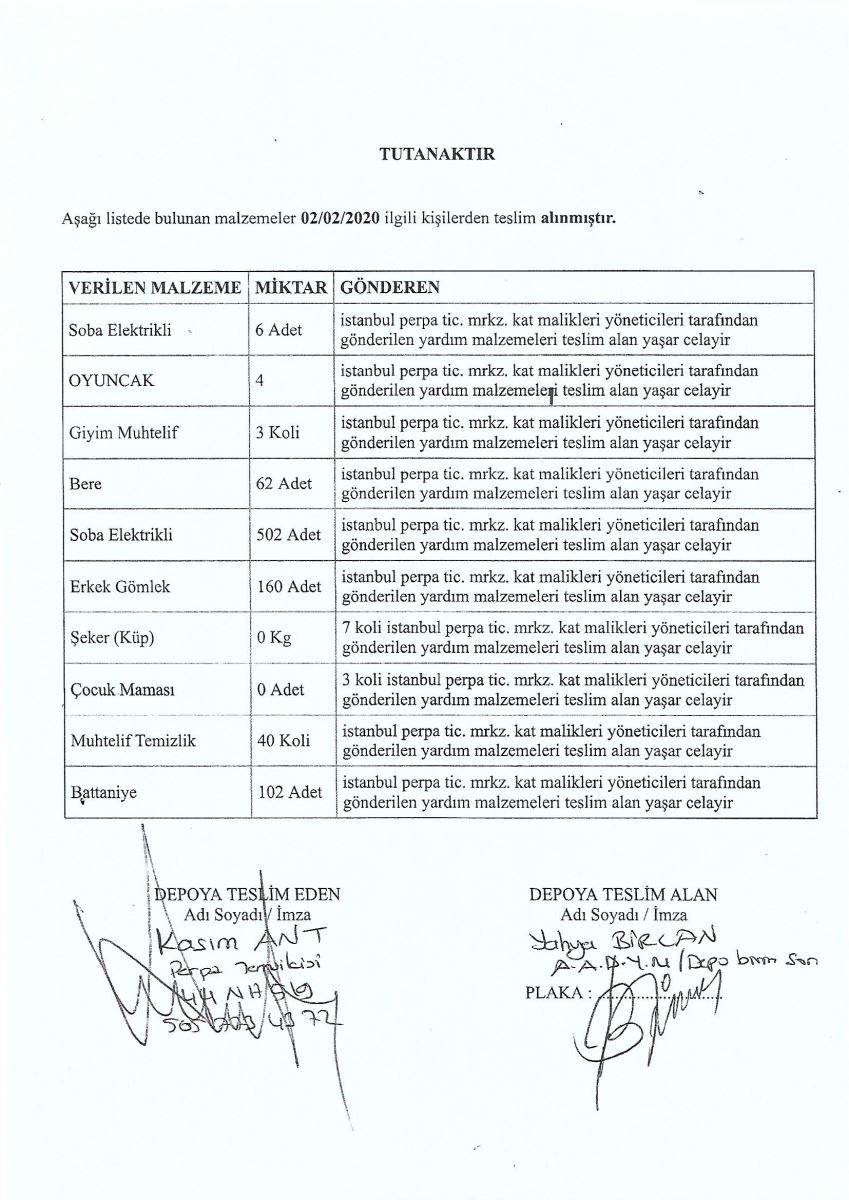 TUTANAKTIR
Aşağı listede bulunan malzemeler 02/02/2020 ilgili kişilerden teslim alınmıştır.
VERİLEN MALZEME MİKTAR GÖNDEREN
Soba Elektrikli 6 Adet istanbul perpa tic. mrkz. kat malikleri yöneticileri tarafından
gönderilen yardım malzemeleri teslim alan yaşar celayir
OYUNCAK 4 istanbul perpa tic. mrkz. kat malikleri yöneticileri tarafından
gönderilen yardım malzemeleri teslim alan yaşar celayir
Giyim Muhtelif 3 Koli istanbul perpa tic. mrkz. kat malikleri yöneticileri tarafından
gönderilen yardım malzemeleri teslim alan yaşar celayir
Bere 62 Adet istanbul perpa tic. mrkz. kat malikleri yöneticileri tarafından
gönderilen yardım malzemeleri teslim alan yaşar celayir
Soba Elektrikli 502 Adet istanbul perpa tic. mrkz. kat malikleri yöneticileri tarafından
gönderilen yardım malzemeleri teslim alan yaşar celayir
Erkek Gömlek 160 Adet istanbul perpa tic. mrkz. kat malikleri yöneticileri tarafından
gönderilen yardım malzemeleri teslim alan yaşar celayir
Şeker (Küp) 0 Kg 7 koli istanbul perpa tic. mrkz. kat malikleri yöneticileri tarafından
gönderilen yardım malzemeleri teslim alan yaşar celayir
Çocuk Maması 0 Adet 3 koli istanbul perpa tic. mrkz. kat malikleri yöneticileri tarafından
gönderilen yardım malzemeleri teslim alan yaşar celayir
Muhtelif Temizlik 40 Koli istanbul perpa tic. mrkz. kat malikleri yöneticileri tarafından
gönderilen yardım malzemeleri teslim alan yaşar celayir
Battaniye 102 Adet istanbul perpa tic. mrkz. kat malikleri yöneticileri tarafından
gönderilen yardım malzemeleri teslim alan yaşar celayir
DEPOYA TESLİM EDEN
Adı Soyadı / İmza
Kasım ANT
Perpa
DEPOYA TESLİM ALAN
Adı Soyadı / İmza
Yahya BİRCAN
/Depo birim Son
PLAKA :